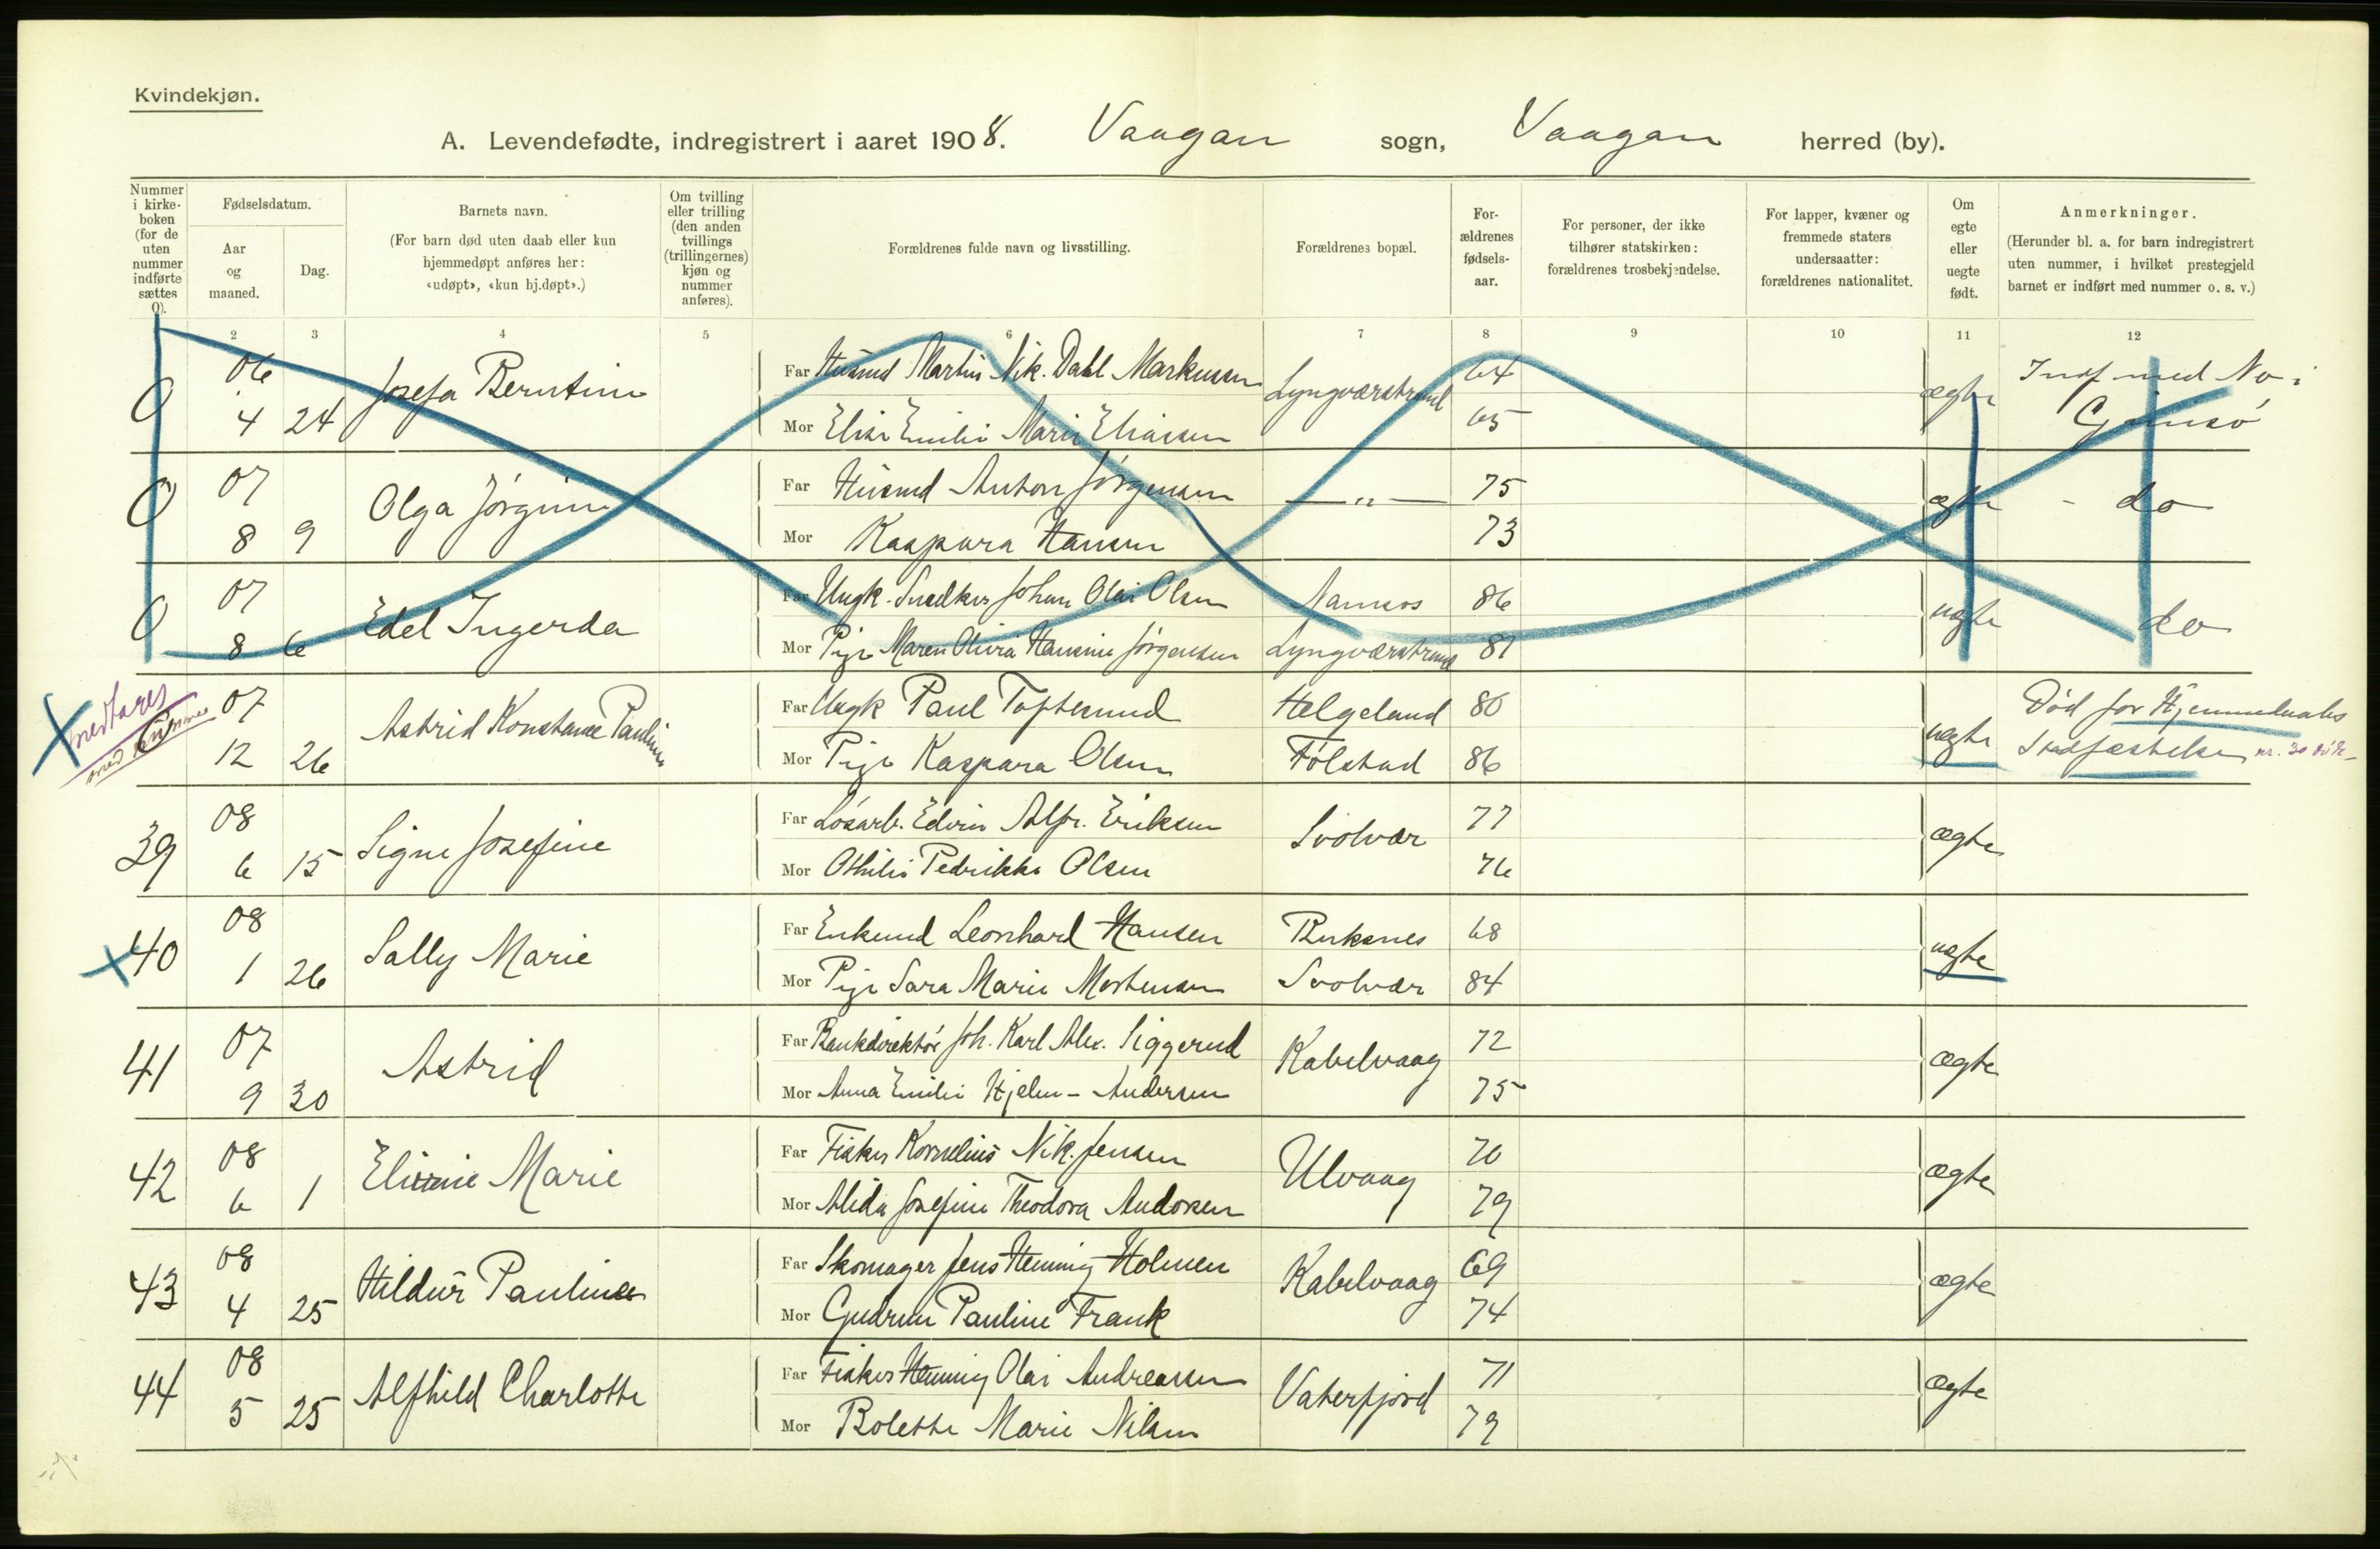 Kvindekjøn.
A. Levendefødte, indregistrert i aaret 1908. Vaagan sogn, Vaagan herred (by).
Nummer i kirke-boken (for de uten nummer indførte sættes 0).
Fødselsdatum.
Aar og maaned.
Dag.
Barnets navn.
(For barn død uten daab eller kun hjemmedøpt anføres her: «udøpt», «kun hj.døpt».)
Om tvilling eller trilling (den anden tvillings (trillingernes) kjøn og nummer anføres).
Forældrenes fulde navn og livsstilling.
Forældrenes bopæl.
For-ældrenes fødsels-aar.
For personer, der ikke tilhører statskirken: forældrenes trosbekjendelse.
For lapper, kvæner og fremmede staters undersaatter: forældrenes nationalitet.
Om egte eller uegte født.
Anmerkninger.
(Herunder bl. a. for barn indregistrert uten nummer, i hvilket prestegjeld barnet er indført med nummer o. s. v.)
2 3 4 5 6 7 8 9 10 11 12
0 06 4 24 Josefa Berntine
Far Husmd Martin Nik. Dahl Markussen Lyngværstrand 64 ægte Indf med No i Gimsø
Mor Elise Emilie Marie Eliassen 65
0 07 8 9 Olga Jørgine
Far Husmd Anton Jørgensen — " — 75 ægte - do
Mor Kaspara Hansen 73
0 07 8 6 Edel Ingerda
Far Ungk. Snedker Johan Olai Olsen Namsos 86 uegte do
Mor Pige Maren Olivia Hansine Jørgensen Lyngværstrand 81
medtages med nummer
07 12 26 Astrid Konstanse Pauline
Far Ungk Paul Toftesund Helgeland 80 uegte Død før Hjemmedaabs
Mor Pige Kaspara Olsen Følstad 86 Stadfæstelse nr. 30 døde
39 08 6 15 Signe Josefine
Far Løsarb. Edvin Alfr. Eriksen Svolvær 77 ægte
Mor Othilie Pedrikke Olsen 76
40 08 1 26 Sally Marie
Far Enkemd Leonhard Hansen Buksnes 68 uegte
Mor Pige Sara Marie Mortensen Svolvær 84
41 07 9 30 Astrid
Far Bankdirektør Joh. Karl Alex. Siggerud Kabelvaag 72 ægte
Mor Anna Emilie Hjelm - Andersen 75
42 08 6 1 Elinnie Marie
Far Fisker Kornelius Nik. Jensen Ulvaag 70 ægte
Mor Alida Josefine Theodora Andorsen 79
43 08 4 25 Hildur Pauline
Far Skomager Jens Henning Holmen Kabelvaag 69 ægte
Mor Gudrun Pauline Frank 74
44 08 5 25 Alfhild Charlotte
Far Fisker Henning Olai Andreassen Vaterfjord 71 ægte
Mor Bolette Marie Nilsen 79